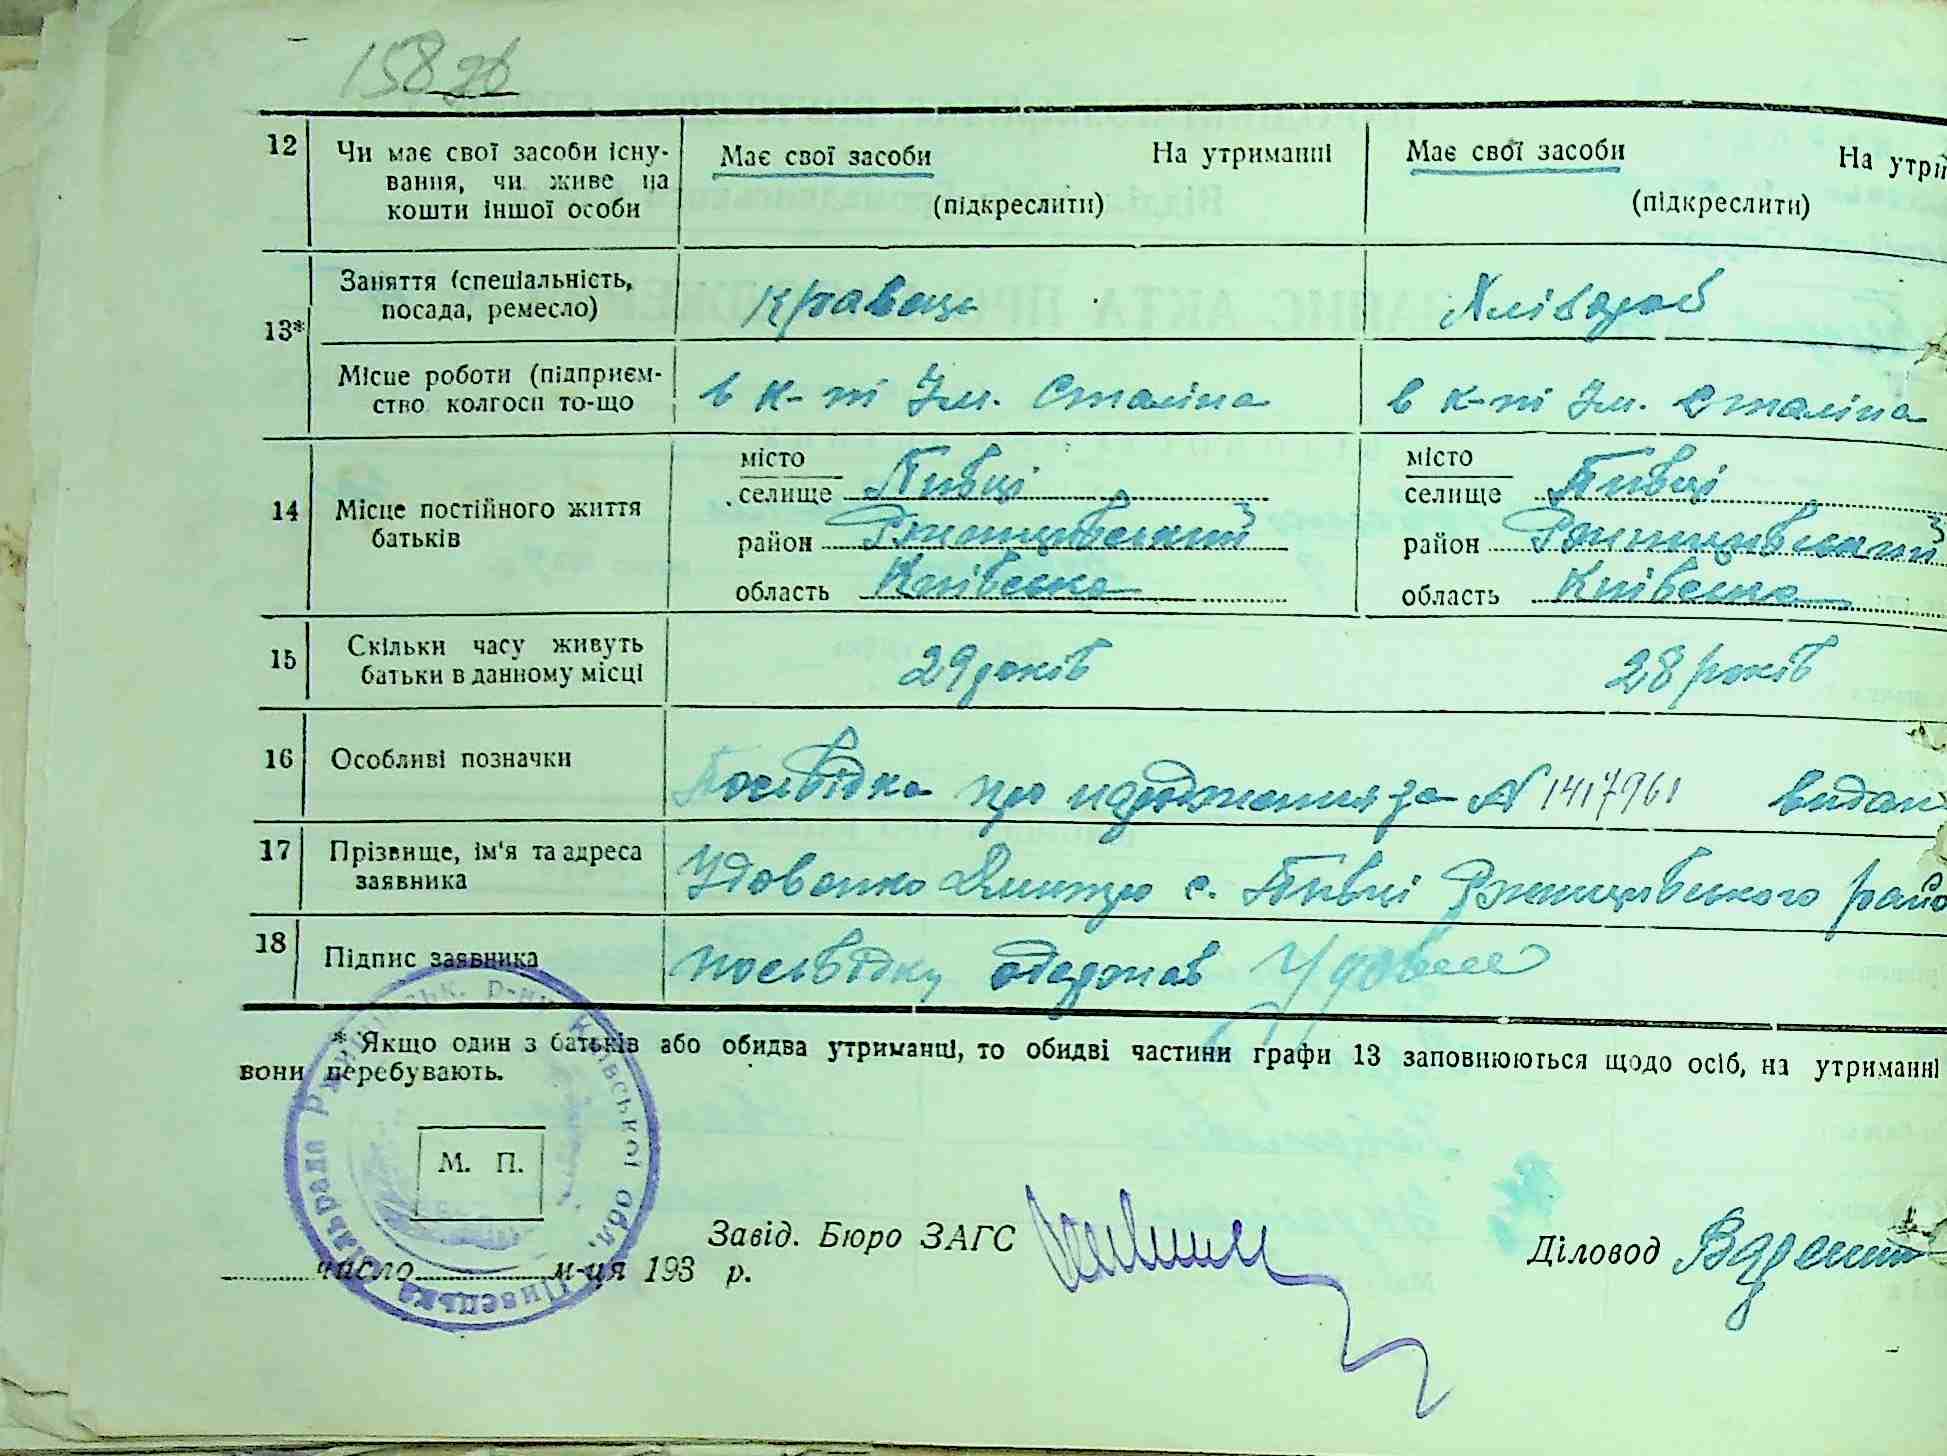 158 зв
12 Чи має свої засоби існу- Має свої засоби На утриманні Має свої засоби На утри
вання, чи живе на
кошти іншої особи (підкреслити) (підкреслити)
Заняття (спеціальність,
посада, ремесло) Кравець Хлібороб
13*
Місце роботи (підприєм-
ство колгосп то-що в к-пі Ім. Сталіна в к-пі Ім. Сталіна
місто місто
селище Пивці селище Пивці
14 Місце постійного життя
батьків район Ржищівський район Ржищівський
область Київська область Київська
15 Скільки часу живуть
батьки в данному місці 29 років 28 років
16 Особливі позначки Посвідка про народження за № 1417961 видан
17 Прізвище, ім'я та адреса
заявника Удовенко Дмитро с. Пивці Ржищівського райо
18 Підпис заявника посвідку одержав
* Якщо один з батьків або обидва утриманці, то обидві частини графи 13 заповнюються щодо осіб, на утриманні
вони перебувають.
М. П.
Завід. Бюро ЗАГС Діловод
число м-ця 193 р.
Пивецька сільрада р-ну Київської обл.